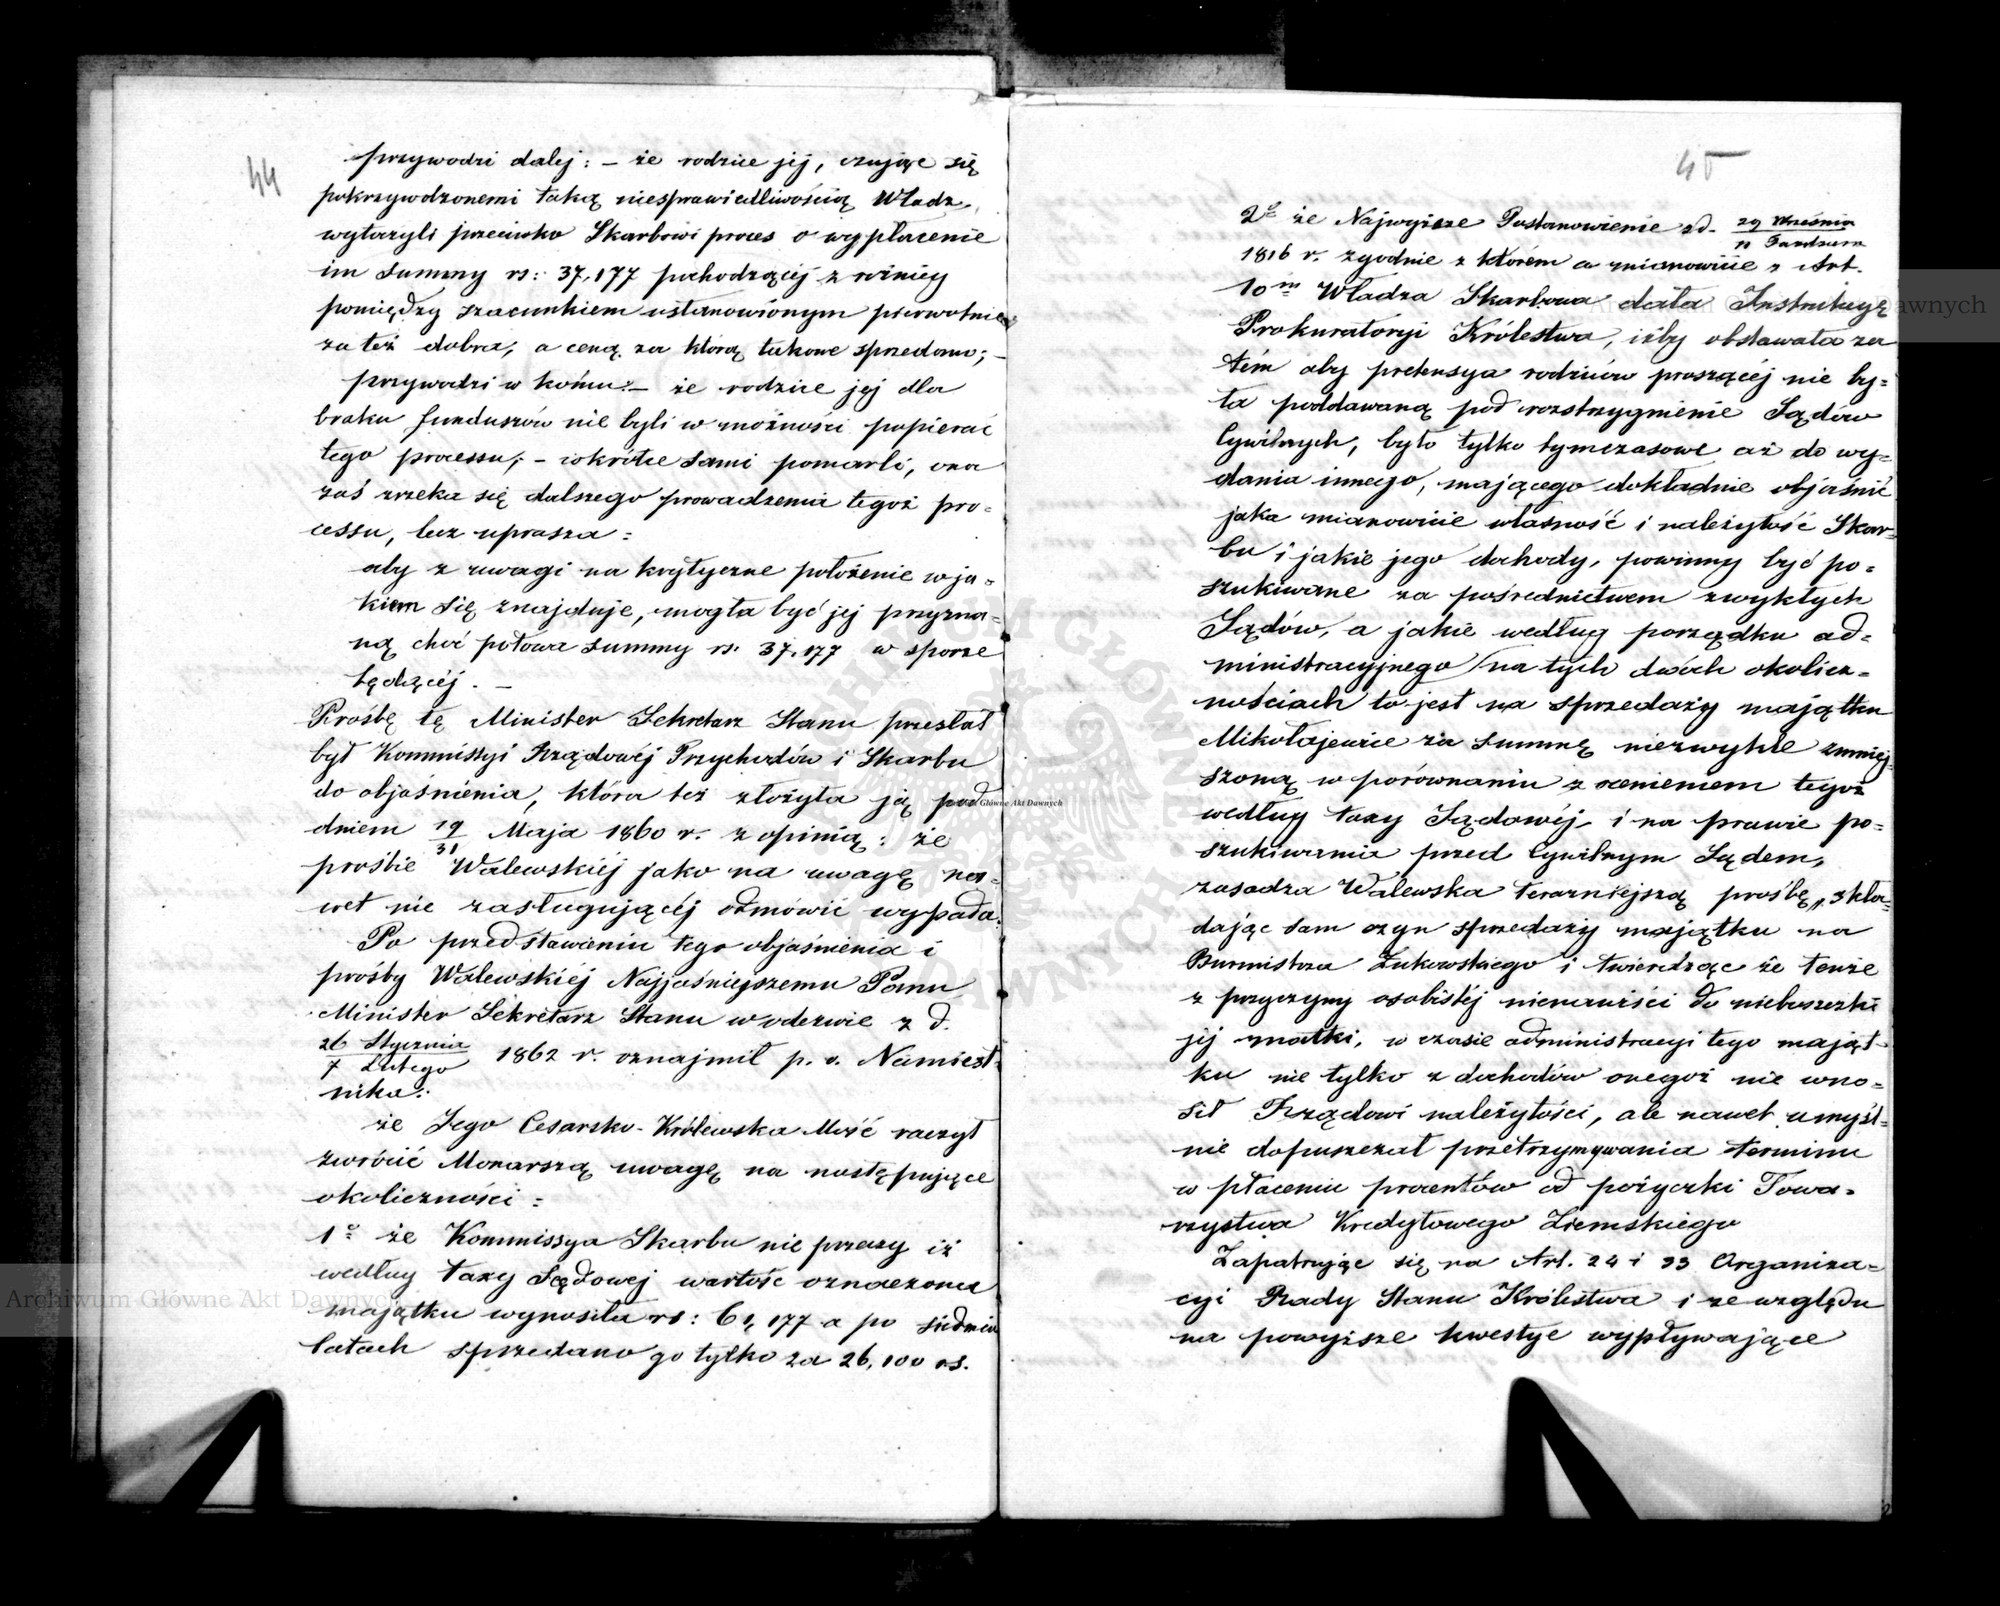 44
przywodzi dalej: – że rodzice jej, czując się
pokrzywdzonemi taką niesprawiedliwością Władz,
wytoczyli przeciwko Skarbowi proces o wypłacenie
im summy rs: 37,177 pochodzącéj z różnicy
pomiędzy szacunkiem ustanowionym pierwotnie
za też dobra, a ceną za którą takowe sprzedano; –
przywodzi w końcu: – że rodzice jej dla
braku funduszów nie byli w możności popierać
tego processu; – wkrótce sami pomarli, ona
zaś zrzeka się dalszego prowadzenia tegoż pro=
cessu, lecz uprasza:
aby z uwagi na krytyczne położenie w ja=
kiem się znajduje, mogła być jej przyzna=
ną choć połowa summy rs. 37,177 w sporze
będącéj. –
Prośbę tę Minister Sekretarz Stanu przesłał
był Kommissyi Rządowéj Przychodów i Skarbu
do objaśnienia, która też złożyła ją pod
dniem 19/31 Maja 1860 r. z opinią: że
prośbie Walewskiéj jako na uwagę na=
wet nie zasługującéj odmówić wypada.
Po przedstawieniu tego objaśnienia i
prośby Walewskiéj Najjaśniejszemu Panu
Minister Sekretarz Stanu w odezwie z d.
26 Stycznia/7 Lutego 1862 r. oznajmił p. o. Namiest=
nika:
że Jego Cesarsko-Królewska Mość raczył
zwrócić Monarszą uwagę na następujące
okoliczności:
1º że Kommissya Skarbu nie przeczy iż
według taxy Sądowej wartość oznaczona
majątku wynosiła rs: 61,177 a po siedmiu
latach sprzedano go tylko za 26,100 rs.
45
2º że Najwyższe Postanowienie z d. 29 Września/11 Października
1816 r. zgodnie z którém a mianowicie z Art.
10m Władza Skarbowa dała Instrukcyę
Prokuratoryi Królestwa, iżby obstawała za
tém aby pretensya rodziców proszącéj nie by=
ła poddawaną pod rozstrzygnienie Sądów
Cywilnych, było tylko tymczasowe aż do wy=
dania innego, mającego dokładnie objaśnić
jaka mianowicie własność i należytość Skar=
bu i jakie jego dochody, powinny być po=
szukiwane za pośrednictwem zwykłych
Sądów, a jakie według porządku ad=
ministracyjnego na tych dwóch okolicz=
nościach to jest na sprzedaży majątku
Mikołajewice za summę niezwykle zmniej=
szoną w porównaniu z cenieniem tegoż
według taxy Sądowéj i na prawie po=
szukiwania przed Cywilnym Sądem,
zasadza Walewska terazniejszą prośbę, skła=
dając sam czyn sprzedaży majątku na
Burmistrza Żukowskiego i twierdząc że tenże
z przyczyny osobistéj nienawiści do nieboszczki
jéj matki, w czasie administracyi tego mająt=
ku nie tylko z dochodów onegoż nie wno=
sił Rządowi należytości, ale nawet umyśl=
nie dopuszczał przetrzymywania terminu
w płaceniu procentów od pożyczki Towa=
rzystwa Kredytowego Ziemskiego
Zapatrując się na Art. 24 i 33 Organiza=
cyi Rady Stanu Królestwa i ze względu
na powyższe kwestye wypływające
Archiwum Główne Akt Dawnych